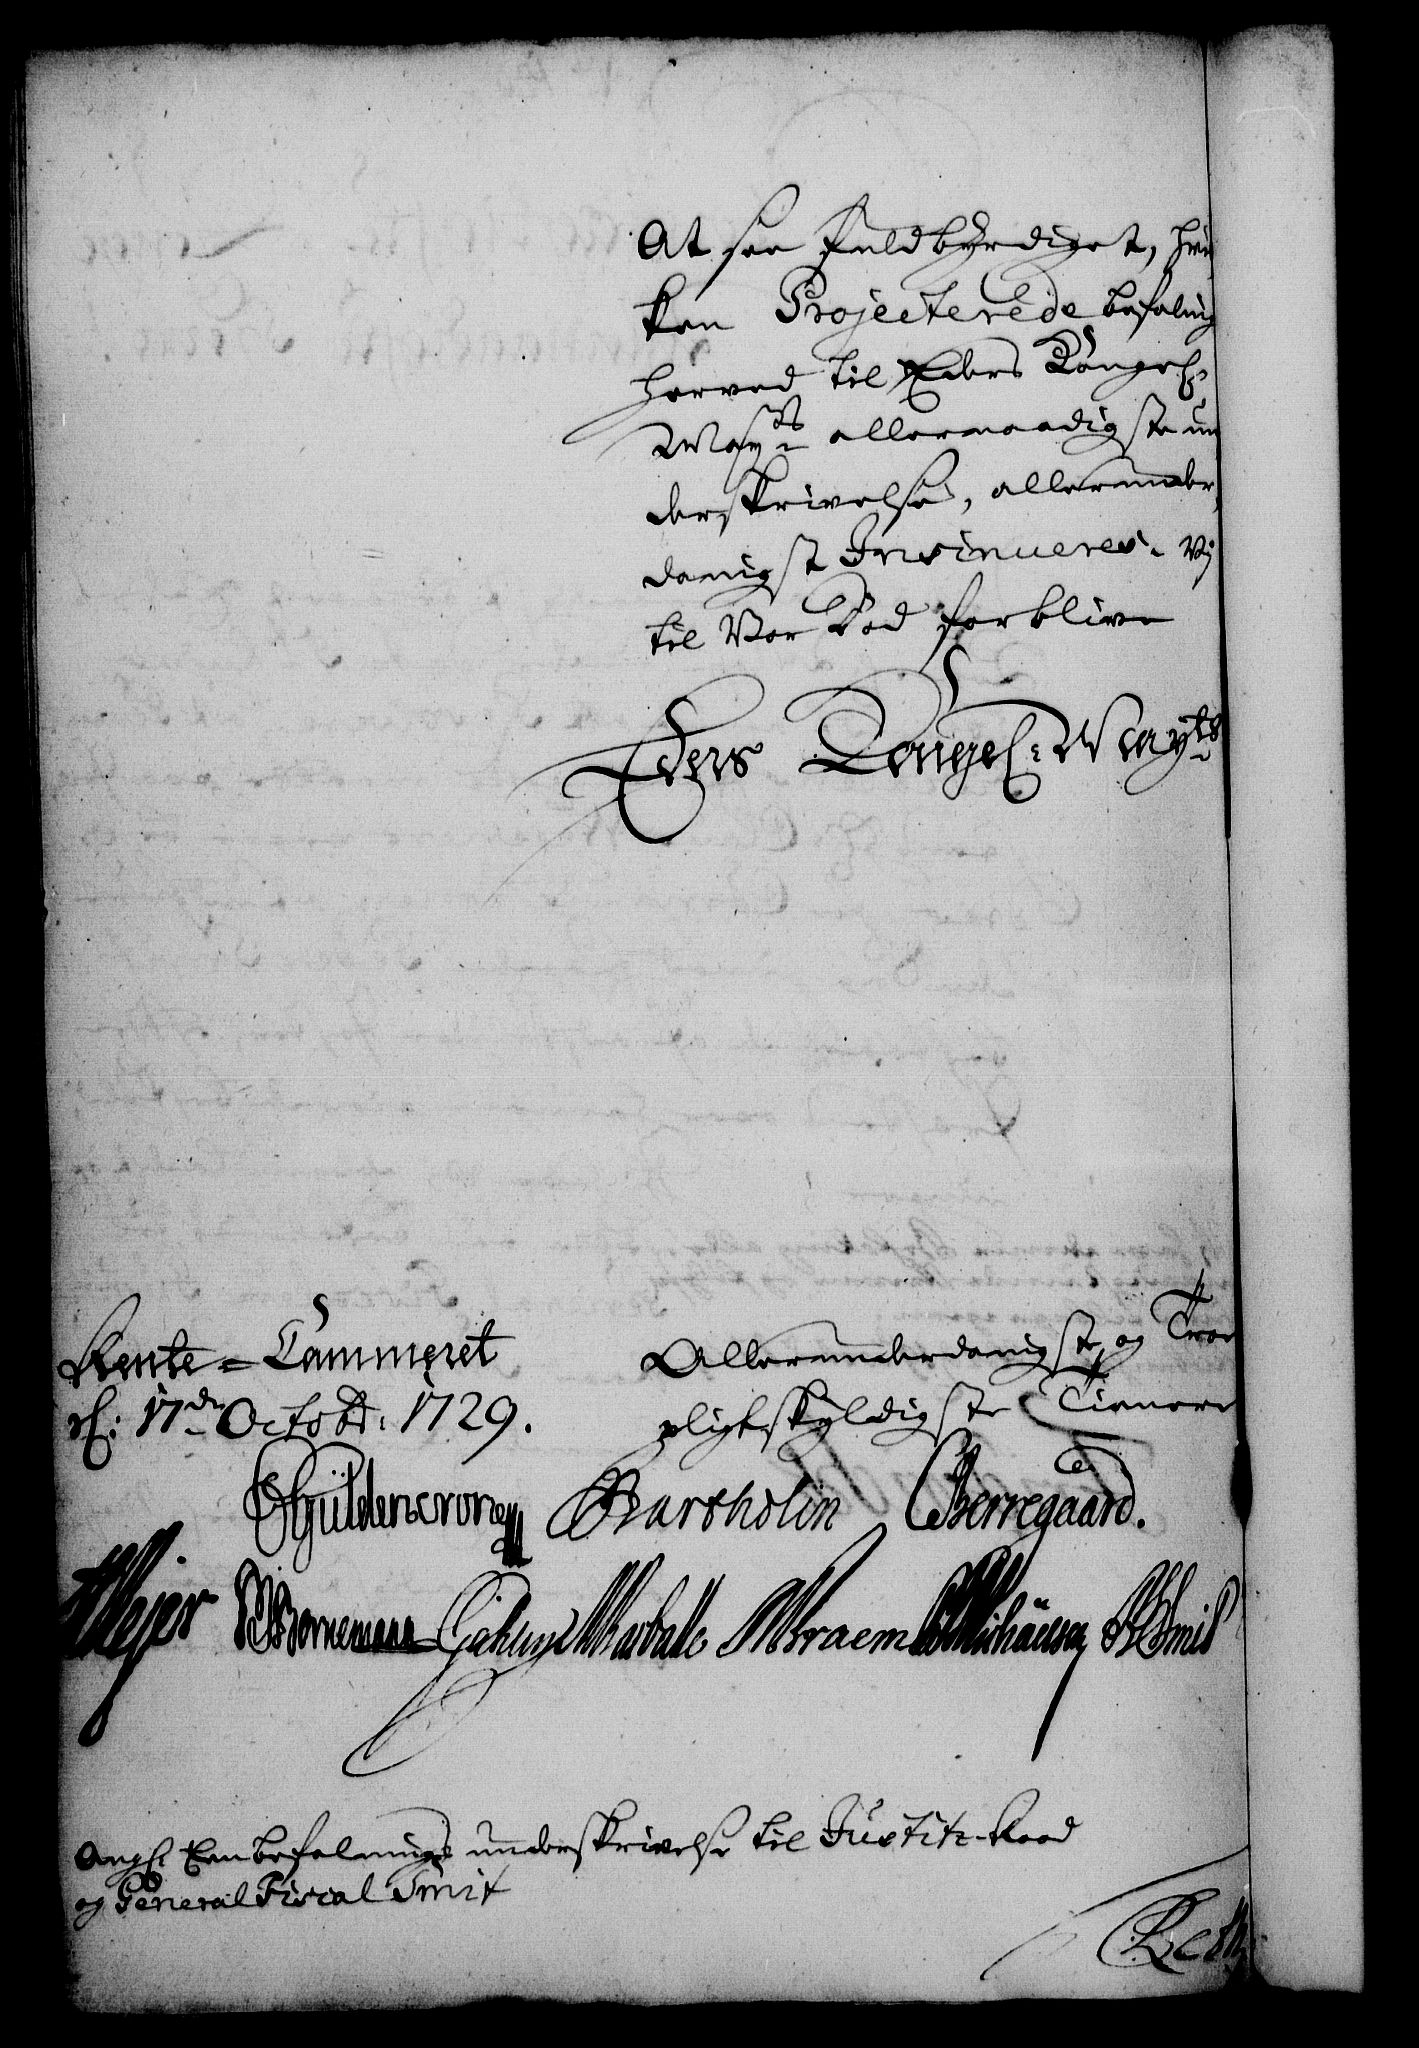 At see fuldbyrdiget, hvil
ken Projecterede befaling
herved til Eders Kongel:
Mayts allernaadigste un
derskrivelse, allerunder
danigst Insinueres. Vi
til Vor Död forblive
Eders Kongel: Mayts
Rente-Cammeret
d: 17de Octobr: 1729.
Allerunderdanigste og Troe
pligtskyldigste Tienere
Güldencrone Bartholin CBerregaard.
Meijer Bornemann Marballe Kraem Smit
Angl: Een befalnings underskrivelse til Justitz-Raad
og General Fiscal Smit